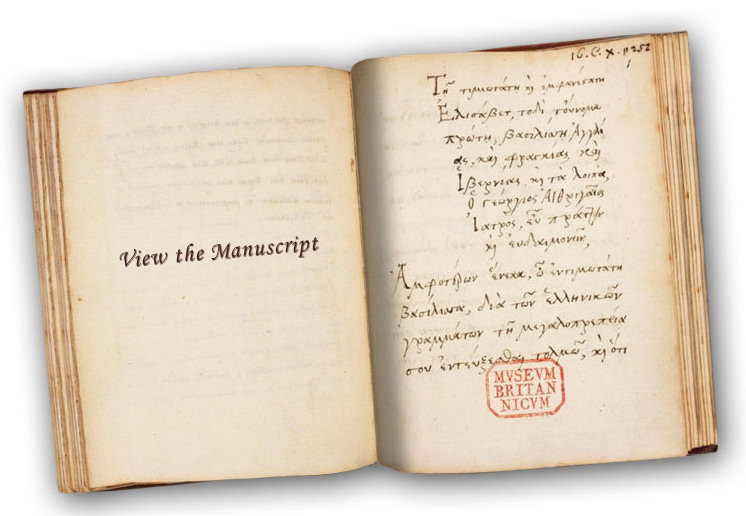 View the Manuscript
16. C. X. p 252
1
Τῇ τιμιωτάτῃ καὶ
Ἐλισάβετ, τοὔνομα
πρώτῃ, βασιλίσσῃ Ἀγγλί
ας, καὶ φραγκίας καὶ
Ἰβερνίας, καὶ τὰ λοιπὰ,
ὁ Γεώργιος
Ἰατρος, εὖ πράττειν
καὶ εὐδαιμονεῖν,
Ἀμφοτέρων ἕνεκα, ὦ ἐντιμωτάτη
βασίλισσα, διὰ τῶν ἑλληνικῶν
γραμμάτων τῇ μεγαλοπρεπεία
σου ἐντεύξεσθαι τολμῶ, καὶ ὅτι
MVSEVM
BRITAN
NICVM